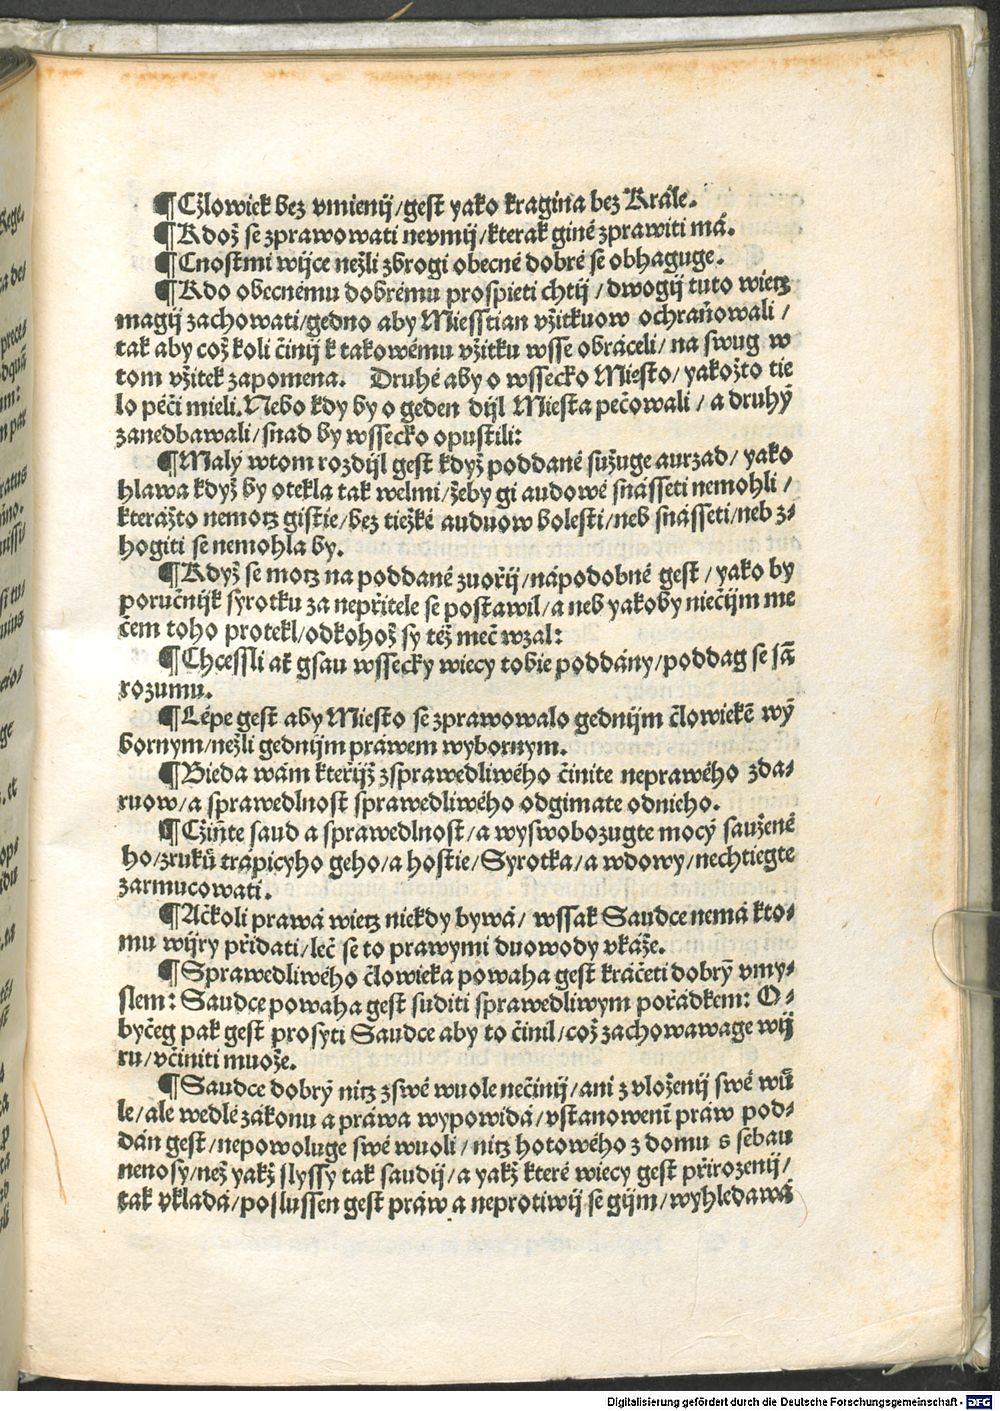 ¶Człowiek bez vmienij/gest yako kragina bez Krále.
¶Kdož se zprawowati nevmij/kterak giné zprawiti má.
¶Cnostmi wijce nežli zbrogi obecné dobré se obhaguge.
¶Kdo obecnému dobrému prospieti chtij / dwogij tuto wietz
magij zachowati/gedno aby Miesstian vžitkuow ochraňowali /
tak aby což koli činij k takowému vžitku wsse obráceli/ na swug w
tom vžitek zapomena. Druhé aby o wssecko Miesto/ yakožto tie
lo péči mieli. Nebo kdy by o geden dijl Miesta pečowali / a druhý
zanedbawali/ snad by wssecko opustili:
¶Malý wtom rozdijl gest když poddané sužuge aurzad/ yako
hlawa když by otekla tak welmi/žeby gi audowé snásseti nemohli /
kterážto nemotz gistie/bez tiežké auduow bolesti/neb snásseti/neb z-
hogiti se nemohla by.
¶Když se motz na poddané zuořij/nápodobné gest / yako by
poručnijk syrotku za nepřitele se postawil/a neb yakoby niečijm me
čem toho protekl/odkohož sy též meč wzal:
¶Chcessli ať gsau wssecky wiecy tobie poddány/poddag se sā
rozumu.
¶Lépe gest aby Miesto se zprawowalo gednijm človiekē wý
bornym/nežli gednijm práwem wybornym.
¶Bieda wám kteřijž zsprawedliwého činite neprawého zda-
ruow/a sprawedlnost sprawedliwého odgimate odnieho.
¶Cžiňte saud a sprawedlnost/a wyswobozugte mocý saužené
ho/zrukū trápicyho geho/a hostie/Syrotka/a wdowy/nechtiegte
zarmucowati.
¶Ačkoli prawá wietz niekdy bywá/ wssak Saudce nemá kto-
mu wijry přidati/leč se to prawymi duowody vkáže.
¶Sprawedliwého človieka powaha gest kráčeti dobrý vmy-
slem: Saudce powaha gest suditi sprawedliwym pořádkem: O-
byčeg pak gest prosyti Saudce aby to činil/což zachowawage wij
ru/včiniti muože.
¶Saudce dobrý nitz zswé wuole nečinij/ani z vloženij swé wů
le/ale wedlé zákonu a práwa wypowidá/vstanowenī práw pod-
dán gest/nepowoluge swé wuoli/nitz hotowého z domu s sebau
nenosy/než yakž slyssy tak saudij/a yakž které wiecy gest přirozenij/
tak vkladá/poslussen gest práw a neprotiwij se gijm/wyhledawá
Digitalisierung gefördert durch die Deutsche Forschungsgemeinschaft - DFG